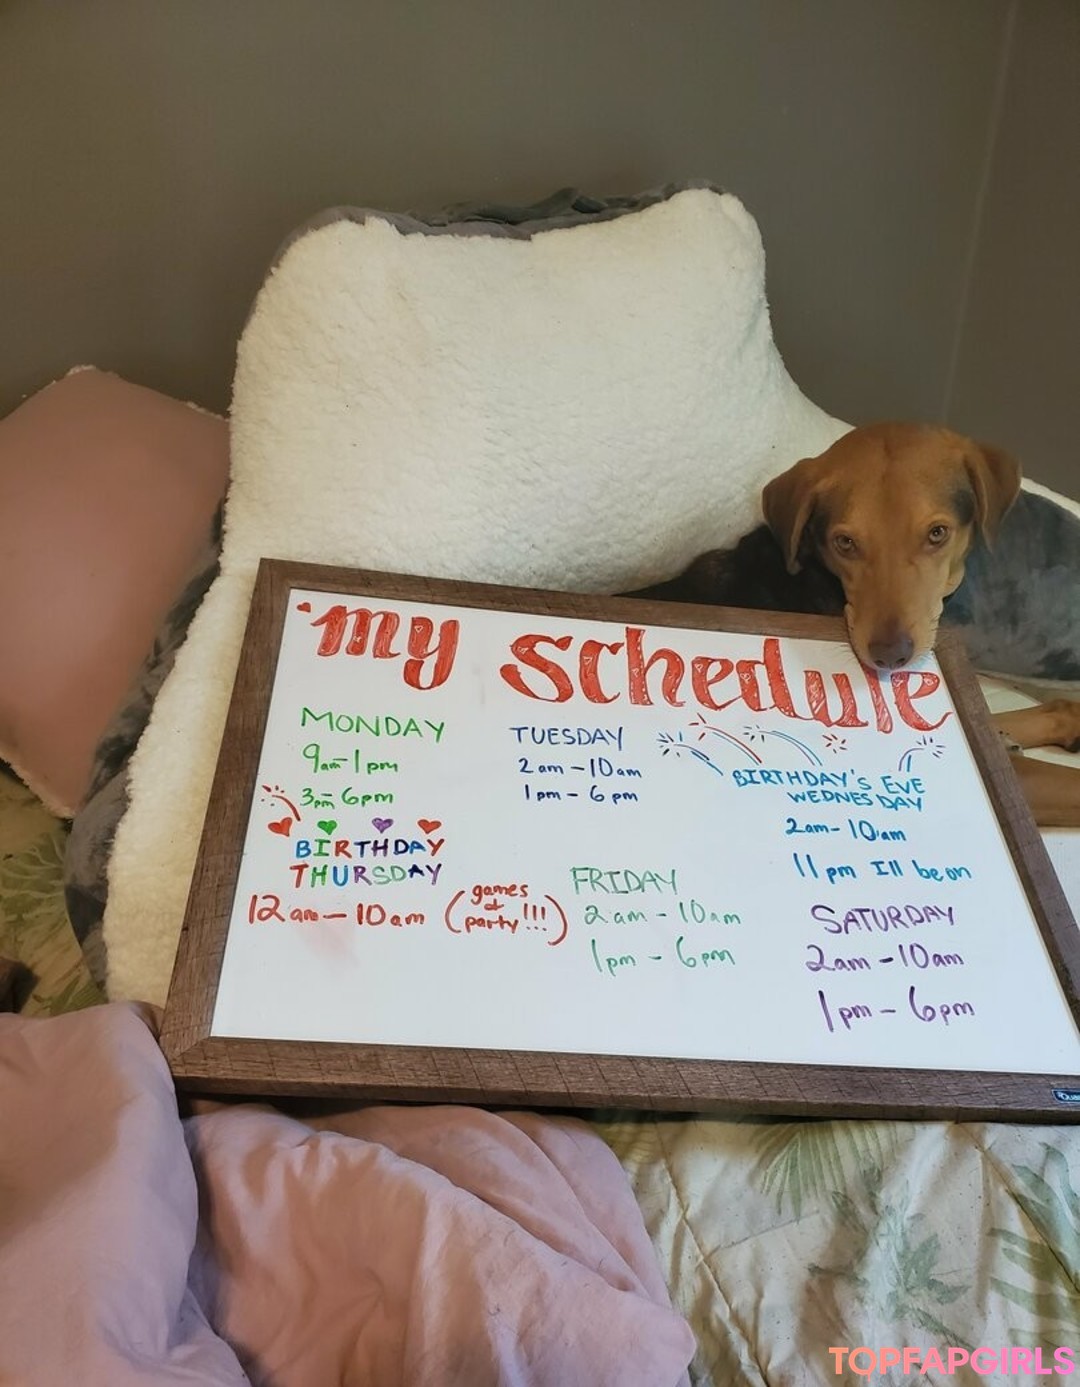 my schedule
MONDAY
9am-1pm
3pm-6pm
TUESDAY
2am-10am
1pm-6pm
BIRTHDAY's EVE
WEDNESDAY
2am-10am
11pm Ill be on
BIRTHDAY
THURSDAY
12am-10am (games & party!!!)
FRIDAY
2am-10am
1pm-6pm
SATURDAY
2am-10am
1pm-6pm
TOPFAPGIRLS